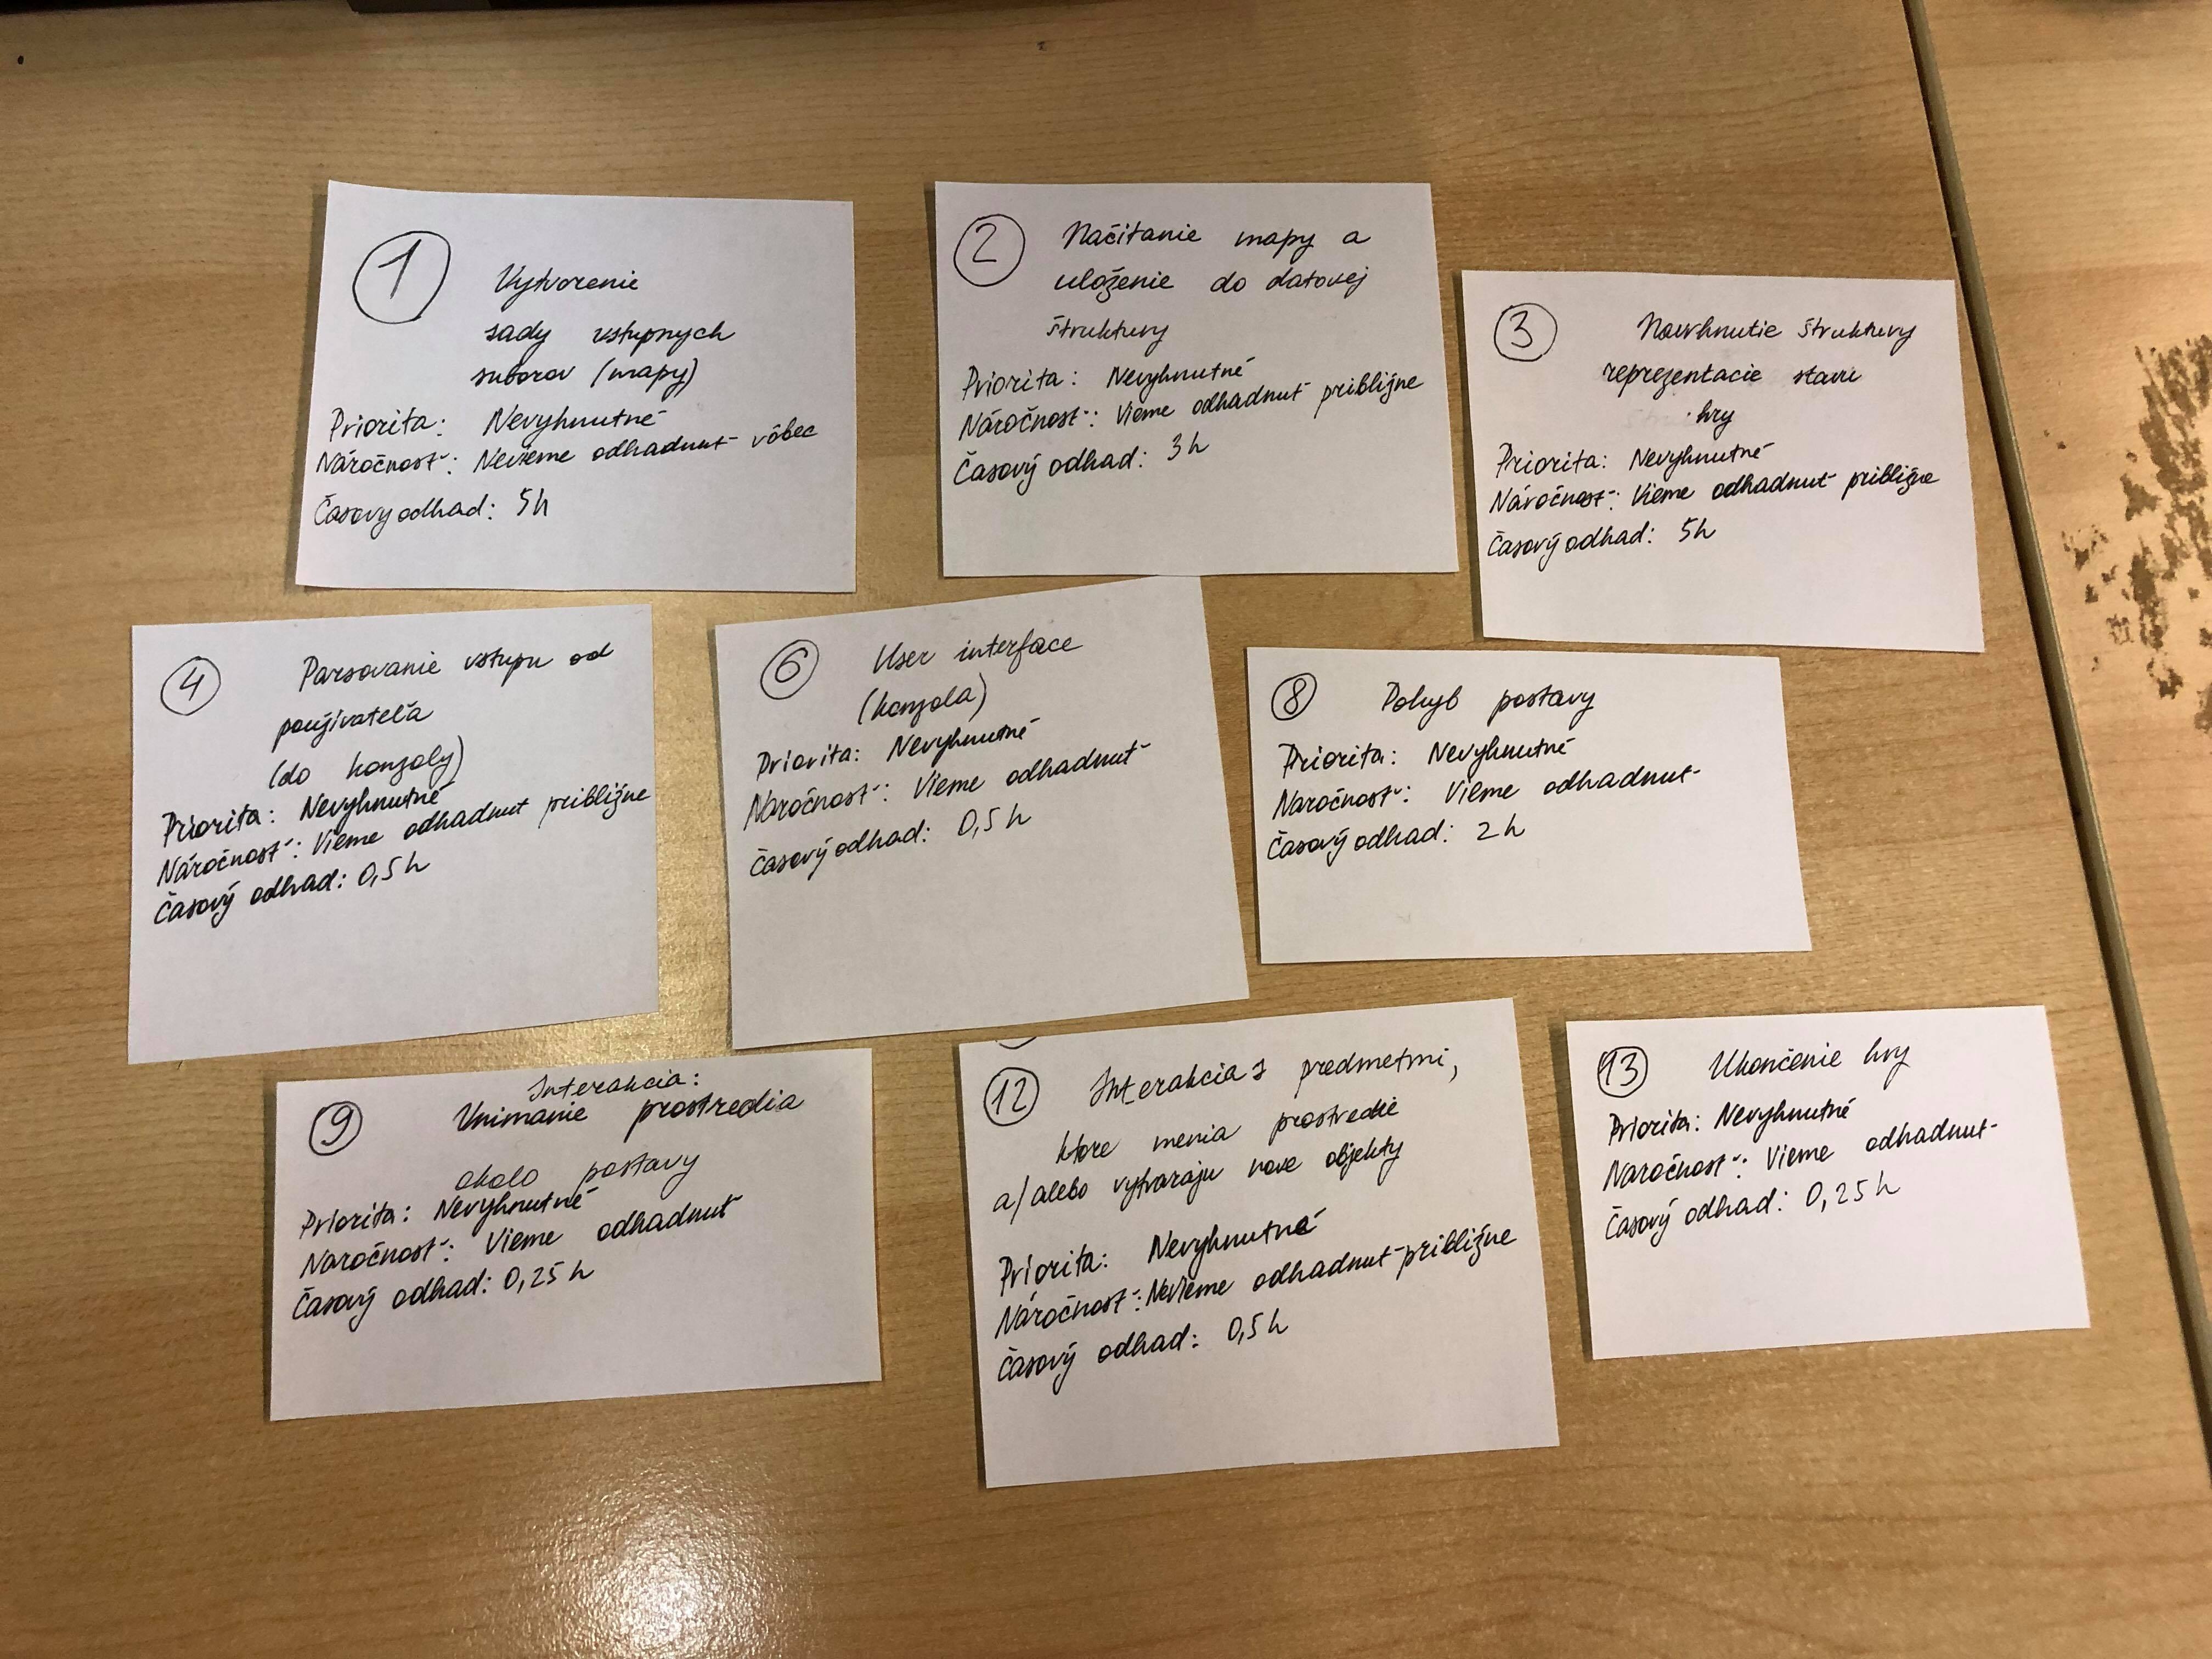 1
Vytvorenie
sady vstupnych
suborov (mapy)
Priorita: Nevyhnutné
Náročnosť: Nevieme odhadnuť vôbec
Časovy odhad: 5h
2
Načitanie mapy a
uloženie do datovej
štruktury
Priorita: Nevyhnutné
Náročnosť: Vieme odhadnuť približne
Časový odhad: 3h
3
Navrhnutie štruktury
reprezentacie stavu
hry
Priorita: Nevyhnutné
Náročnosť: Vieme odhadnuť približne
Časový odhad: 5h
4
Parsovanie vstupu od
použivateľa
(do konzoly)
Priorita: Nevyhnutné
Náročnosť: Vieme odhadnuť približne
Časový odhad: 0,5h
6
User interface
(konzola)
Priorita: Nevyhnutné
Naročnosť: Vieme odhadnuť
Časový odhad: 0,5h
8
Pohyb postavy
Priorita: Nevyhnutné
Naročnosť: Vieme odhadnuť
Časový odhad: 2h
9
Interakcia:
Vnimanie prostredia
okolo postavy
Priorita: Nevyhnutné
Naročnosť: Vieme odhadnuť
Časový odhad: 0,25h
12
Interakcia s predmetmi,
ktore menia prostredie
a/alebo vytvaraju nove objekty
Priorita: Nevyhnutné
Náročnosť: Nevieme odhadnuť približne
Časový odhad: 0,5h
13
Ukončenie hry
Priorita: Nevyhnutné
Naročnosť: Vieme odhadnuť
Časový odhad: 0,25h